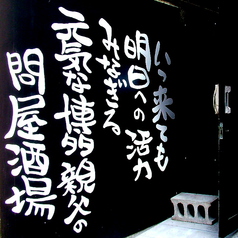 いつ来ても
明日への活力
みなぎる
元気な博多親父の
問屋酒場